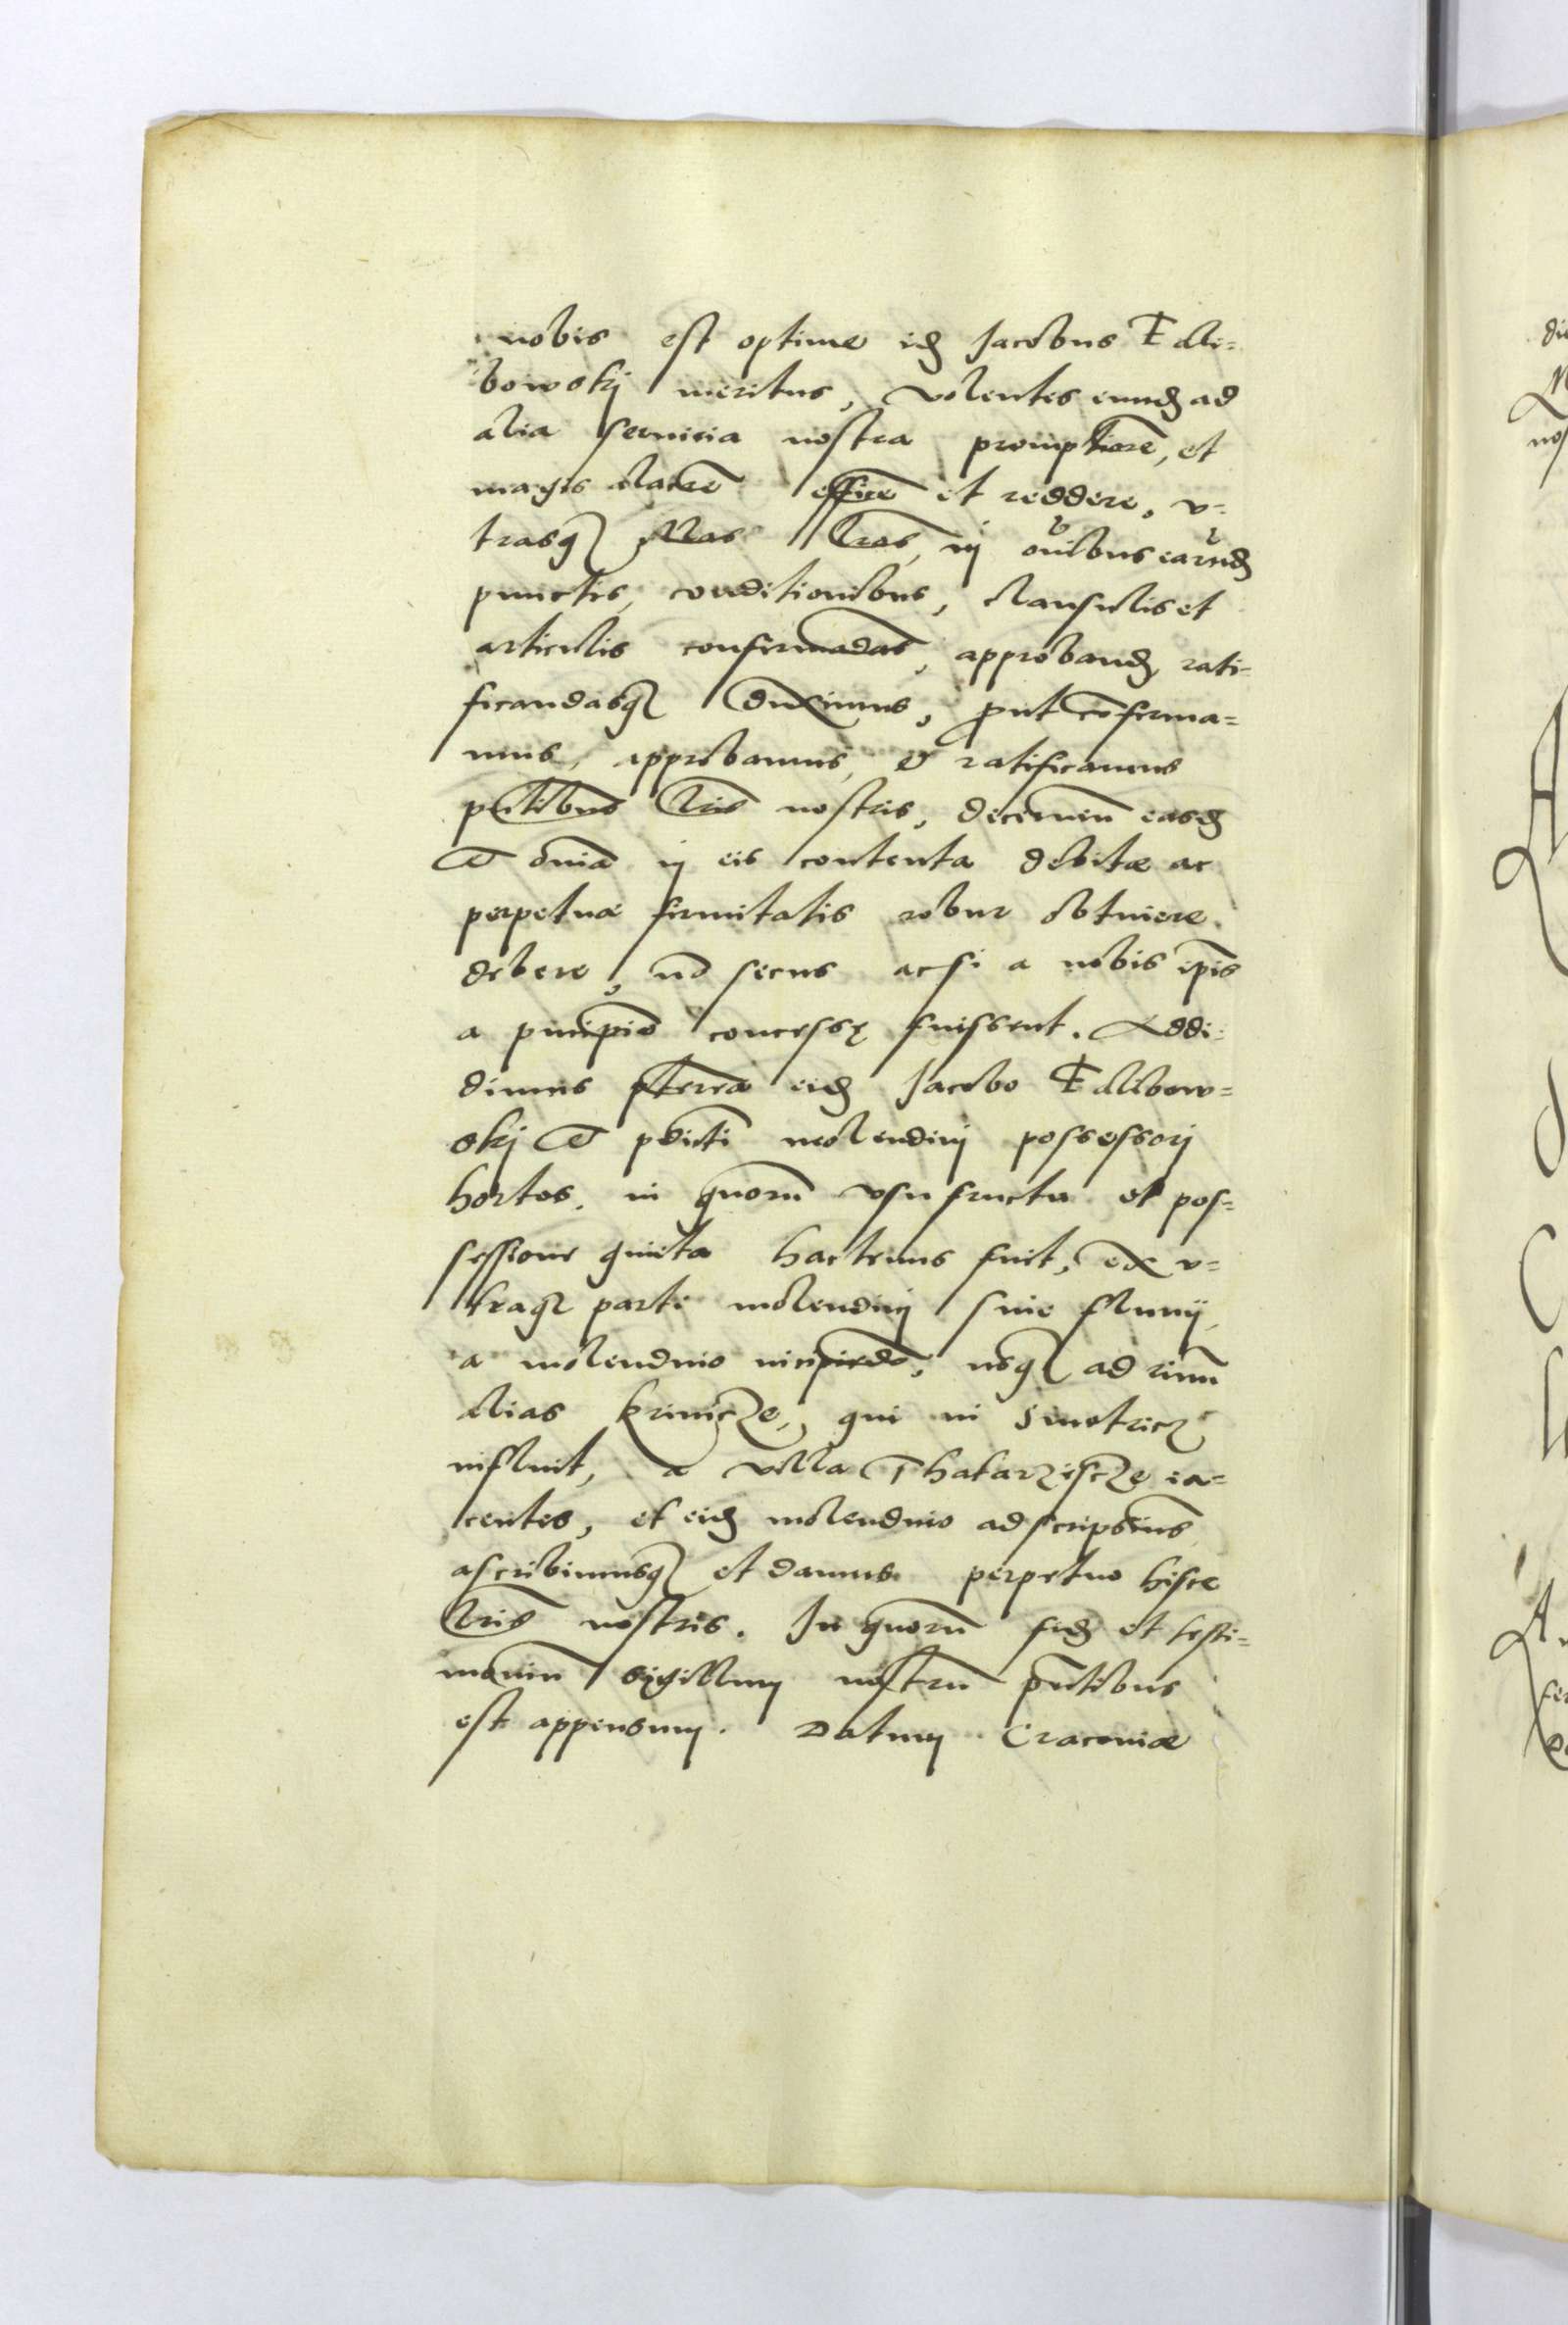 nobis est optime idẽ Jacobus Tali=
bowskj meritus, volentes eundẽ ad
alia seruicia nostra promptiorẽ, et
magis alacrẽ efficẽ et reddere, v=
trasq3 illas lras, in oĩbus earũdẽ
punctis, conditionibus, clausulis et
articulis confirmãdas, approband, rati-
ficandasq3 duximus, prout cõfirma=
mus, approbamus, et ratificamus
pñtibus lris nostris, decernẽn easdẽ
et oĩnia in eis contenta debitæ ac
perpetuæ firmitatis robur obtinere
debere, nõ secus acsi a nobis ip̃is
a pincipio concessę fuissent. Addi=
dimus pterea eidẽ Jacobo Talibow=
skj et pdicti molendinj possessorj
hortos, in quorũ vsufructu et pos=
sessione quieta hactenus fuit, ex v=
traq3 parte molendinj siue fluuij,
a molendino incipiẽdo, usq3 ad riuũ
alias krinicze, qui in Smotricz
influit, a villa Thatarziscze ia=
centes, et eidẽ molendino adscripsim̃s,
ascribimusq3 et damus perpetuo hisce
lris nostris. In quorũ fidẽ et testi=
moniũ sigillum nostrũ pñtibus
est appensum. Datum Cracouiæ